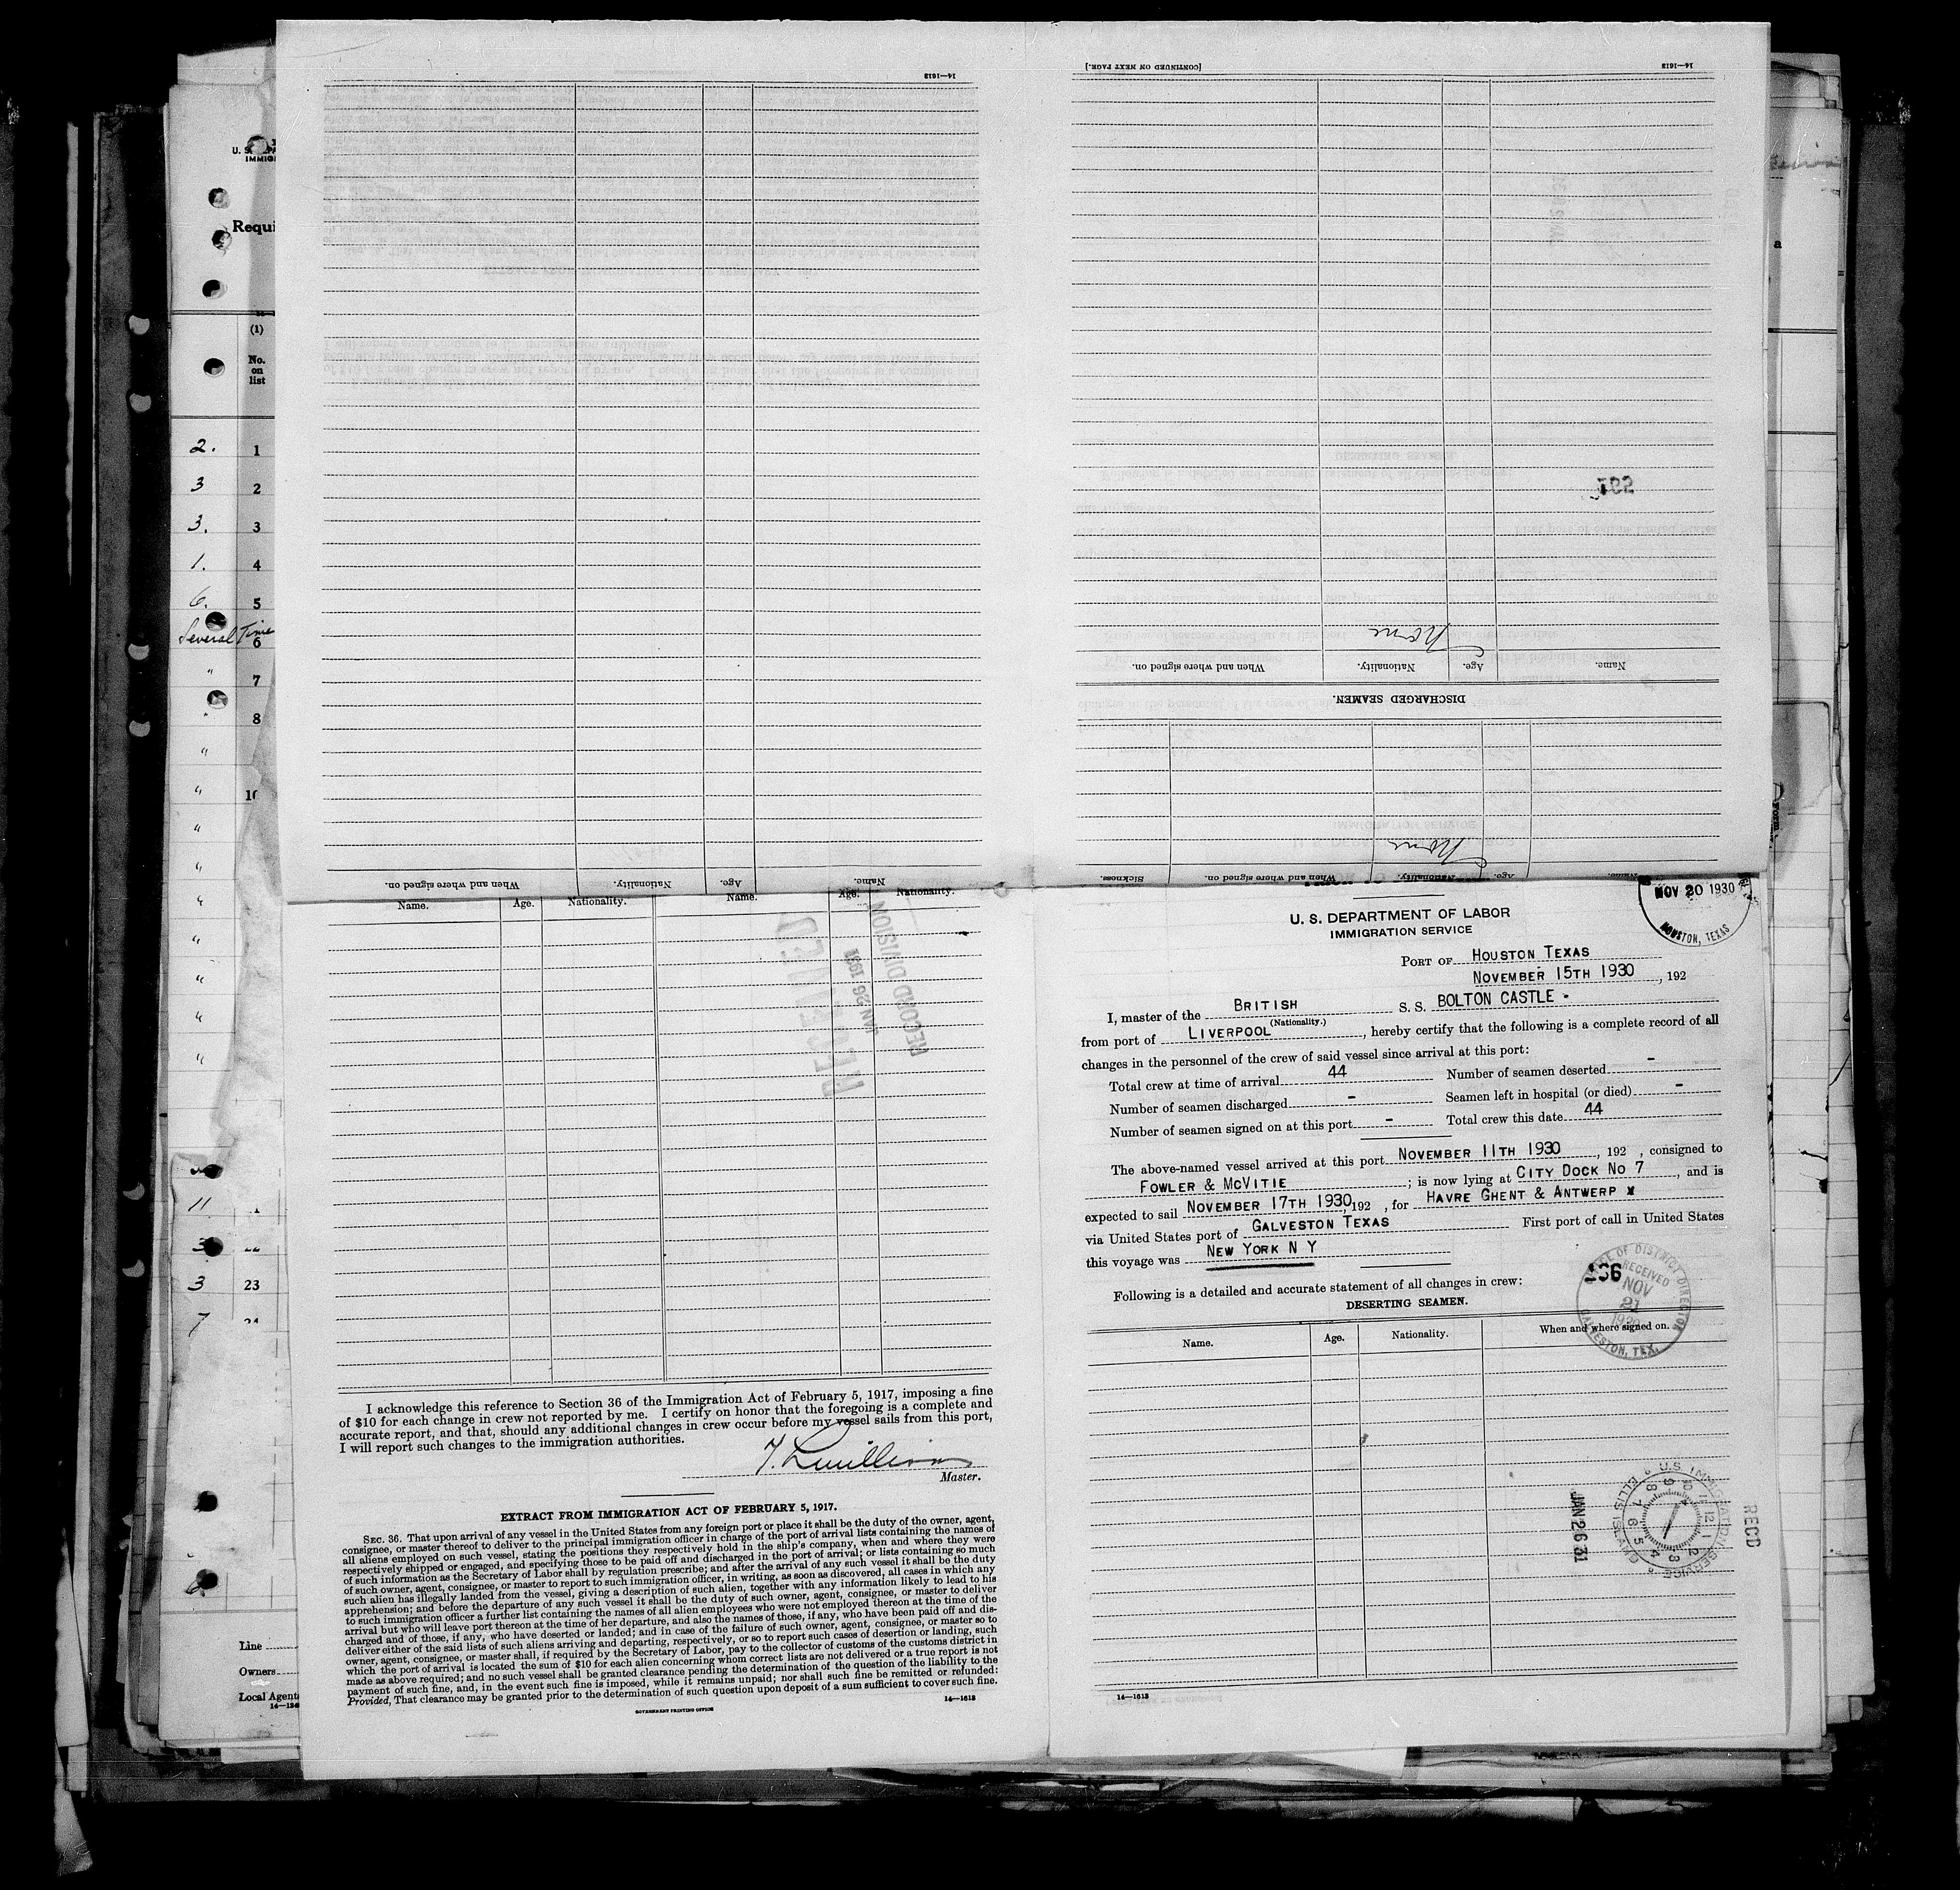 14—1613
[CONTINUED ON NEXT PAGE.]
14—1613
Name.
Age.
Nationality.
When and where signed on.
DISCHARGED SEAMEN.
Name.
Age.
Nationality.
When and where signed on.
None
Name.
Age.
Nationality.
When and where signed on.
Sickness.
None
Requi
(1)
No.
on
list
2. 1
3 2
3. 3
1. 4
6. 5
Several Time 6
" 7
" 8
"
"
"
"
"
"
"
"
"
11
3
3 23
7
Line
Owners
Local Agent
Name. Age. Nationality. Name. Age. Nationality.
RECEIVED
JAN 26 1931
RECORD DIVISION
I acknowledge this reference to Section 36 of the Immigration Act of February 5, 1917, imposing a fine
of $10 for each change in crew not reported by me. I certify on honor that the foregoing is a complete and
accurate report, and that, should any additional changes in crew occur before my vessel sails from this port,
I will report such changes to the immigration authorities.
Master.
EXTRACT FROM IMMIGRATION ACT OF FEBRUARY 5, 1917.
SEC. 36. That upon arrival of any vessel in the United States from any foreign port or place it shall be the duty of the owner, agent,
consignee, or master thereof to deliver to the principal immigration officer in charge of the port of arrival lists containing the names of
all aliens employed on such vessel, stating the positions they respectively hold in the ship's company, when and where they were
respectively shipped or engaged, and specifying those to be paid off and discharged in the port of arrival; or lists containing so much
of such information as the Secretary of Labor shall by regulation prescribe; and after the arrival of any such vessel it shall be the duty
of such owner, agent, consignee, or master to report to such immigration officer, in writing, as soon as discovered, all cases in which any
such alien has illegally landed from the vessel, giving a description of such alien, together with any information likely to lead to his
apprehension; and before the departure of any such vessel it shall be the duty of such owner, agent, consignee, or master to deliver
to such immigration officer a further list containing the names of all alien employees who were not employed thereon at the time of the
arrival but who will leave port thereon at the time of her departure, and also the names of those, if any, who have been paid off and dis-
charged and of those, if any, who have deserted or landed; and in case of the failure of such owner, agent, consignee, or master so to
deliver either of the said lists of such aliens arriving and departing, respectively, or so to report such cases of desertion or landing, such
owner, agent, consignee, or master shall, if required by the Secretary of Labor, pay to the collector of customs of the customs district in
which the port of arrival is located the sum of $10 for each alien concerning whom correct lists are not delivered or a true report is not
made as above required; and no such vessel shall be granted clearance pending the determination of the question of the liability to the
payment of such fine, and, in the event such fine is imposed, while it remains unpaid; nor shall such fine be remitted or refunded:
Provided, That clearance may be granted prior to the determination of such question upon deposit of a sum sufficient to cover such fine.
GOVERNMENT PRINTING OFFICE
14—1613
NOV 20 1930
HOUSTON, TEXAS
U. S. DEPARTMENT OF LABOR
IMMIGRATION SERVICE
PORT OF HOUSTON TEXAS
NOVEMBER 15TH 1930, 192
I, master of the BRITISH S. S. BOLTON CASTLE -
(Nationality.)
from port of LIVERPOOL, hereby certify that the following is a complete record of all
changes in the personnel of the crew of said vessel since arrival at this port:
Total crew at time of arrival 44 Number of seamen deserted -
Number of seamen discharged - Seamen left in hospital (or died) -
Number of seamen signed on at this port - Total crew this date 44
The above-named vessel arrived at this port NOVEMBER 11TH 1930, 192 , consigned to
FOWLER & MCVITIE; is now lying at CITY DOCK NO 7, and is
expected to sail NOVEMBER 17TH 1930, 192 , for HAVRE GHENT & ANTWERP x
via United States port of GALVESTON TEXAS First port of call in United States
this voyage was NEW YORK N Y
Following is a detailed and accurate statement of all changes in crew:
OFFICE OF DISTRICT DIRECTOR
RECEIVED
NOV
21
1930
GALVESTON, TEX.
DESERTING SEAMEN.
Name. Age. Nationality. When and where signed on.
RECD
U.S. IMMIGRATION SERVICE
ELLIS ISLAND
12 1 2 3 4 5 6 7 8 9 10 11
JAN 26 31
14—1613